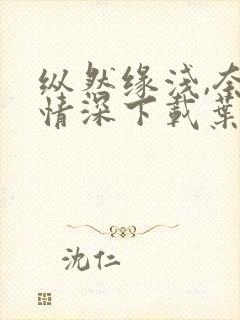 纵然缘浅,奈
情深下载葉
沈仁